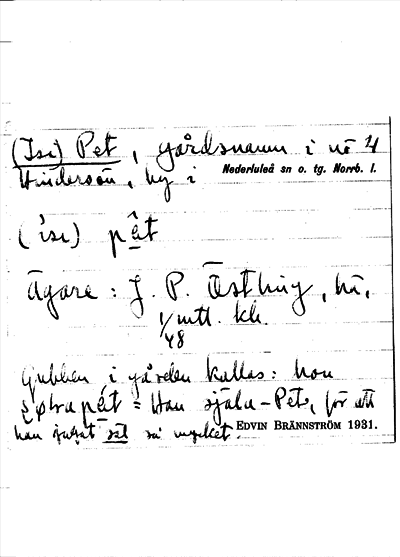 (Isi) Pet, gårdsnamn i nö 4
Hindersön, by i Nederluleå sn o. tg. Norrb. l.
(ísi) pêt
Ägare: J. P. Östling, hn,
1/ mtl. kh.
48
Gubben i gården kallas: hon
pét = Han själa-Pet, för att
han sät så mycket. EDVIN BRÄNNSTRÖM 1931.